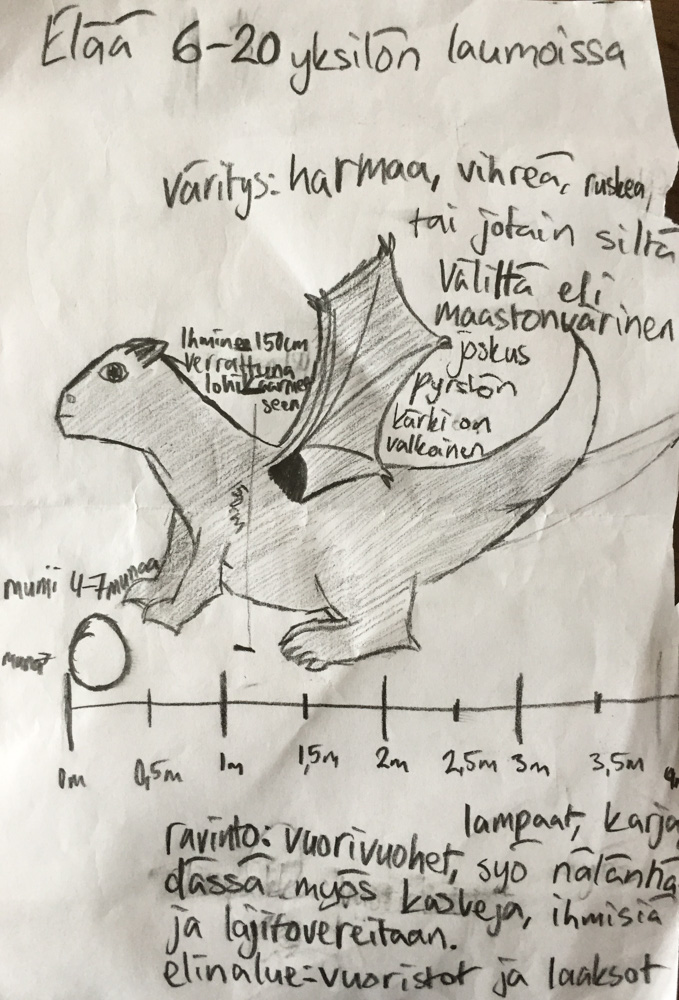 Elää 6-20 yksilön laumoissa
väritys: harmaa, vihreä, ruskea,
tai jotain siltä
väliltä eli
maastonvärinen
joskus
pyrstön
kärki on
valkoinen
Ihminen 150cm
verrattuna
lohikäärmee
seen
munii 4-7 munaa
0m 0,5m 1m 1,5m 2m 2,5m 3m 3,5m
lampaat, karja
ravinto: vuorivuohet, syö nälänhä
dässä myös kasveja, ihmisiä
ja lajitovereitaan.
elinalue=vuoristot ja laaksot